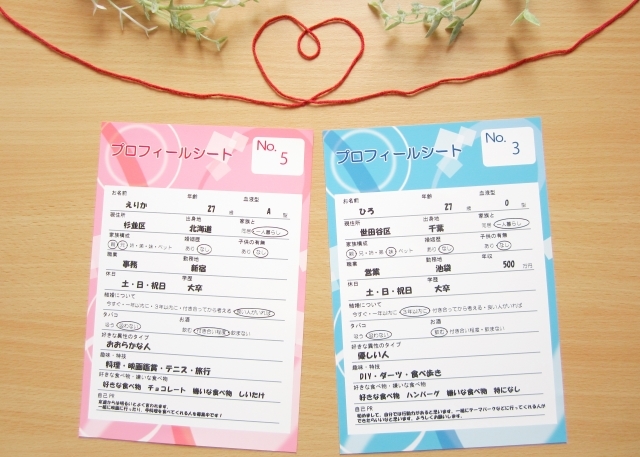 プロフィールシート
No.
5
お名前 年齢 血液型
えりか 27 歳 A 型
現住所 出身地 家族と
杉並区 北海道 同居・一人暮らし
家族構成 婚姻歴 子供の有無
あり なし あり なし
職業 勤務地
事務 新宿
休日 学歴
土・日・祝日 大卒
結婚について
今すぐ・一年以内に・3年以内に・付き合ってから考える・良い人がいれば
タバコ お酒
吸う 吸わない 飲む・付き合い程度・飲まない
好きな異性のタイプ
おおらかな人
趣味・特技
料理・映画鑑賞・テニス・旅行
好きな食べ物・嫌いな食べ物
好きな食べ物 チョコレート 嫌いな食べ物 しいたけ
自己PR
プロフィールシート
No.
3
お名前 年齢 血液型
ひろ 27 歳 O 型
現住所 出身地 家族と
世田谷区 千葉 同居・一人暮らし
家族構成 婚姻歴 子供の有無
あり なし あり なし
職業 勤務地 年収
営業 池袋 500 万円
休日 学歴
土・日・祝日 大卒
結婚について
今すぐ・一年以内に・3年以内に・付き合ってから考える・良い人がいれば
タバコ お酒
吸う 吸わない 飲む・付き合い程度・飲まない
好きな異性のタイプ
優しい人
趣味・特技
DIY・ダーツ・食べ歩き
好きな食べ物・嫌いな食べ物
好きな食べ物 ハンバーグ 嫌いな食べ物 特になし
自己PR